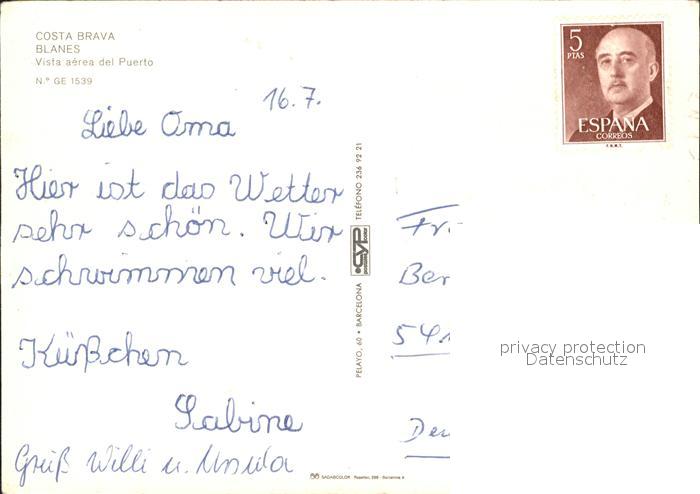 COSTA BRAVA
BLANES
Vista aérea del Puerto
N.º GE 1539
5
PTAS
ESPAÑA
CORREOS
F.N.M.T.
16.7.
Liebe Oma
Hier ist das Wetter
sehr schön. Wir
schwimmen viel.
Küßchen
Sabine
Gruß Willi u. Ursula
PELAYO, 60 • BARCELONA CYP TELÉFONO 236 92 21
Fr
Ber
541
Deu
privacy protection
Datenschutz
SADAGCOLOR